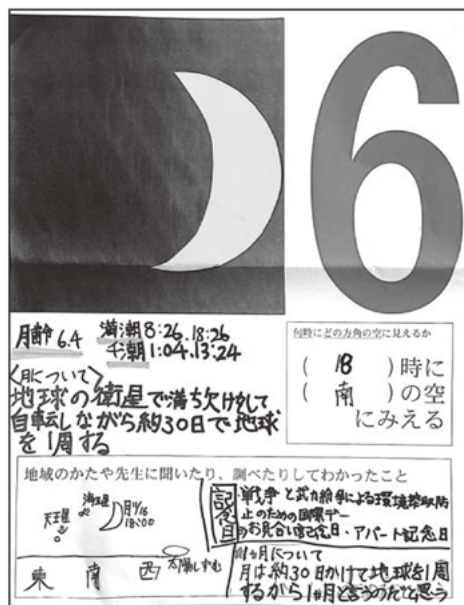 6
月齢 6.4 満潮 8:26. 18:26
干潮 1:04. 13:24
<月について>
地球の衛星で満ち欠けをして
自転しながら約30日で地球
を1周する
何時にどの方角の空に見えるか
( 18 )時に
( 南 )の空
にみえる
地域のかたや先生に聞いたり、調べたりしてわかったこと
海王星
天王星
18:00
太陽しずむ
東 南 西
記念日
・戦争と武力紛争による環境搾取防
止のための国際デー
・お見合い記念日・アパート記念日
1ヵ月について
月は約30日かけて地球を1周
するから1ヵ月と言うのだと思う